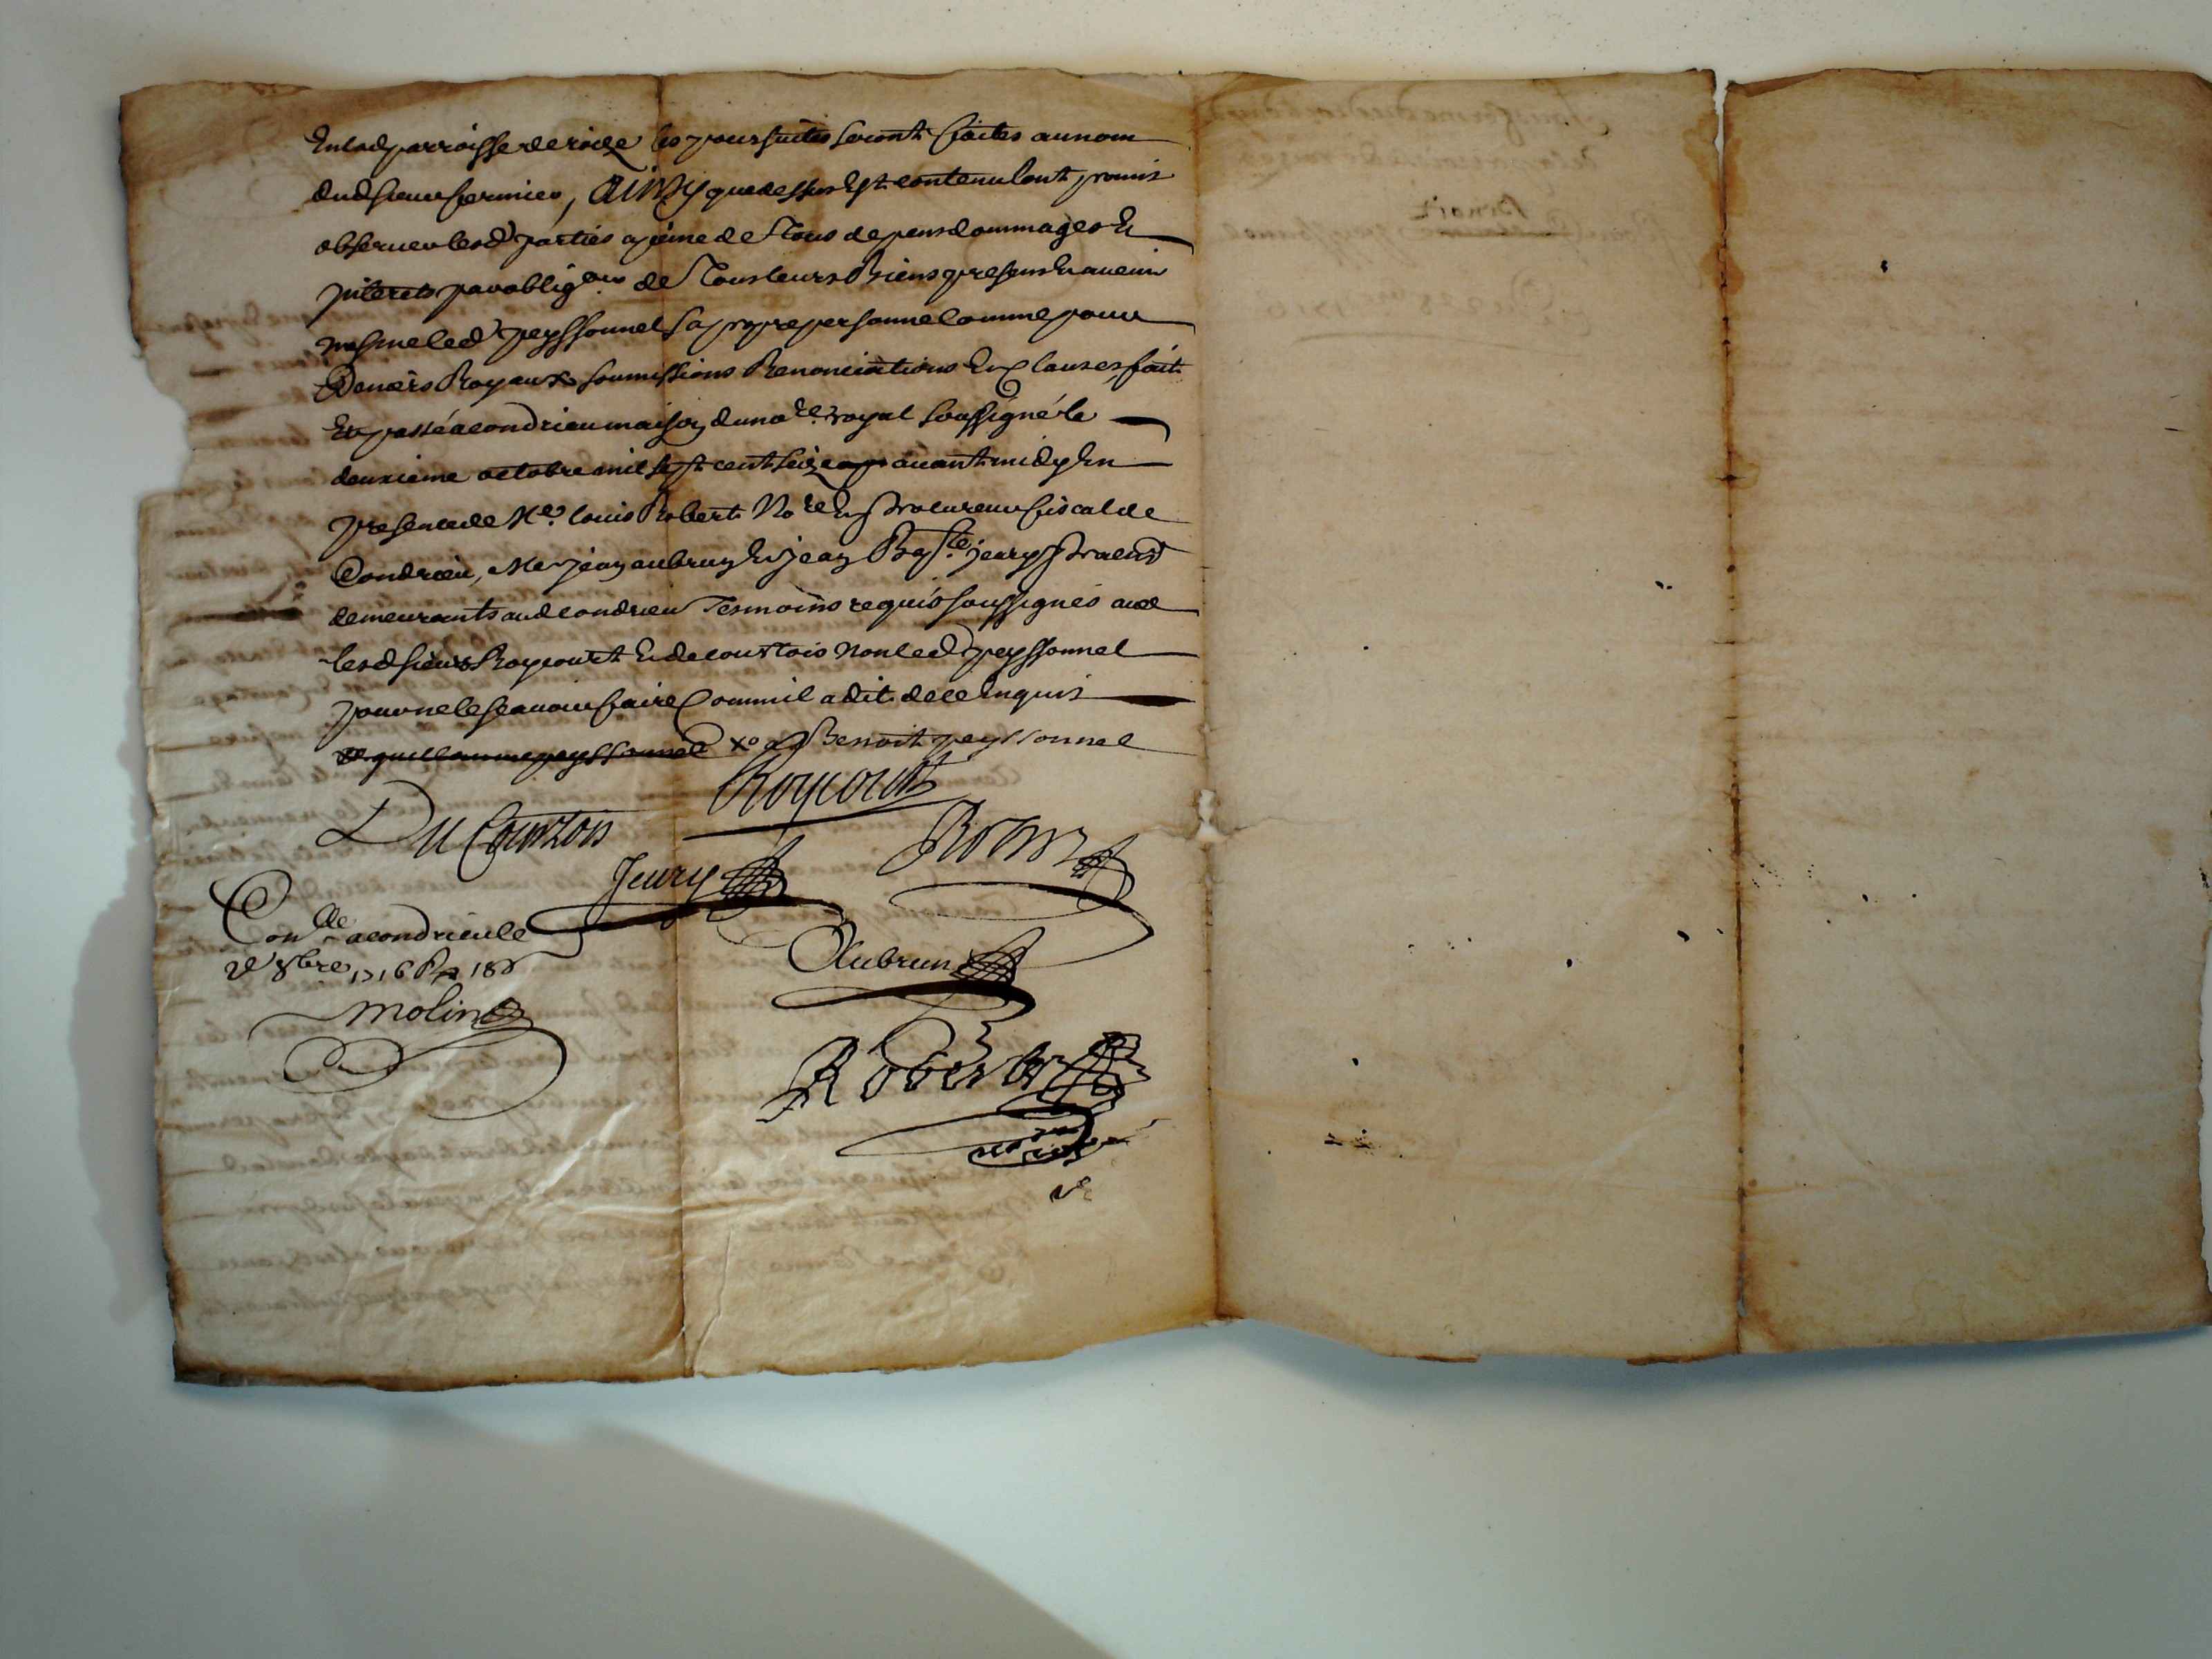 En lad parroisse de roize les poursuittes seront faites au nom
dud sieur fermier, Ainsy que dessus Est contenu lont promis
observer lesd parties a peine de Tous depens dommages Et
Interets par obligaon de Tous leurs Biens presens Et avenir
mesme led peyssonnel sa propre personne comme pour
Deniers Royaux soumissions Renonciations Et Clauses, fait
Et passé a condrieu maison du nore royal soussigné le
deuxieme octobre mil sept cent seize avant midy En
presence de Me louis Robert Nore Et Procureur fiscal de
Condrieu, Me jean aubrun Et jean Bapste jeury Pratns
demeurants aud condrieu Tesmoins requis soussignés avec
lesd sieurs Roycourt Et de courtois Non led peyssonnel
pour ne le scavoir faire Comm il a dit de ce Enquis
de guillaume peyssonnel xo a Benoit peyssonnel
Roycourt
Du Courtois
Jeury
Robert
Conlle a condrieu le
2e 8bre 1716 R 18s
Aubrun
molin
Robert
no royal
Benoit
1716